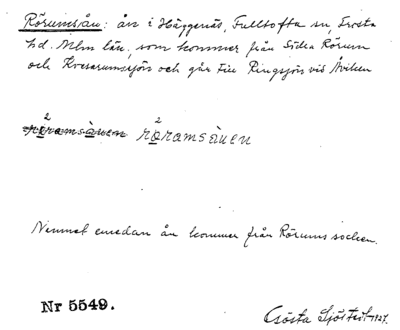 Rörumsån: ån i Häggenäs, Fulltofta sn, Frosta
hd. Mlm län, som kommer från Södra Rörum
och Korsarumssjön och går till Ringsjön vid Åviken
röramsàuen
Namnet emedan ån kommer från Rörums socken.
Nr 5549.
Gösta Sjöstedt 1927.